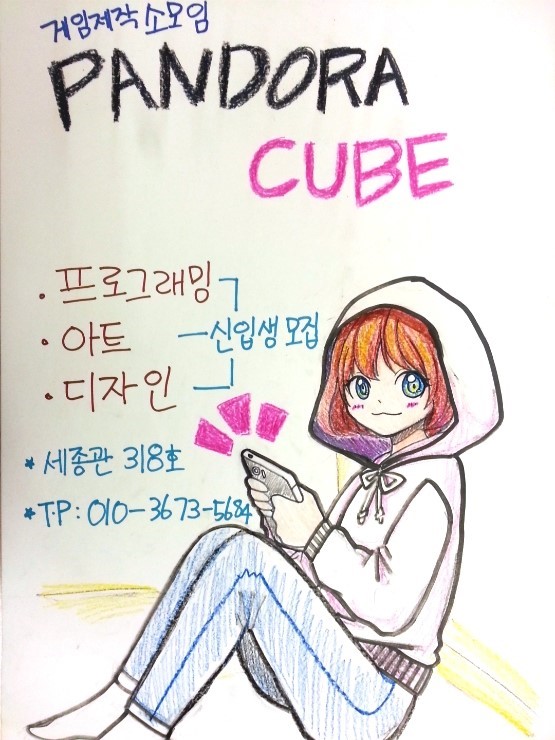 게임제작 소모임
PANDORA
CUBE
· 프로그래밍
· 아트
· 디자인
신입생 모집
* 세종관 318호
* T·P : 010-3673-5684